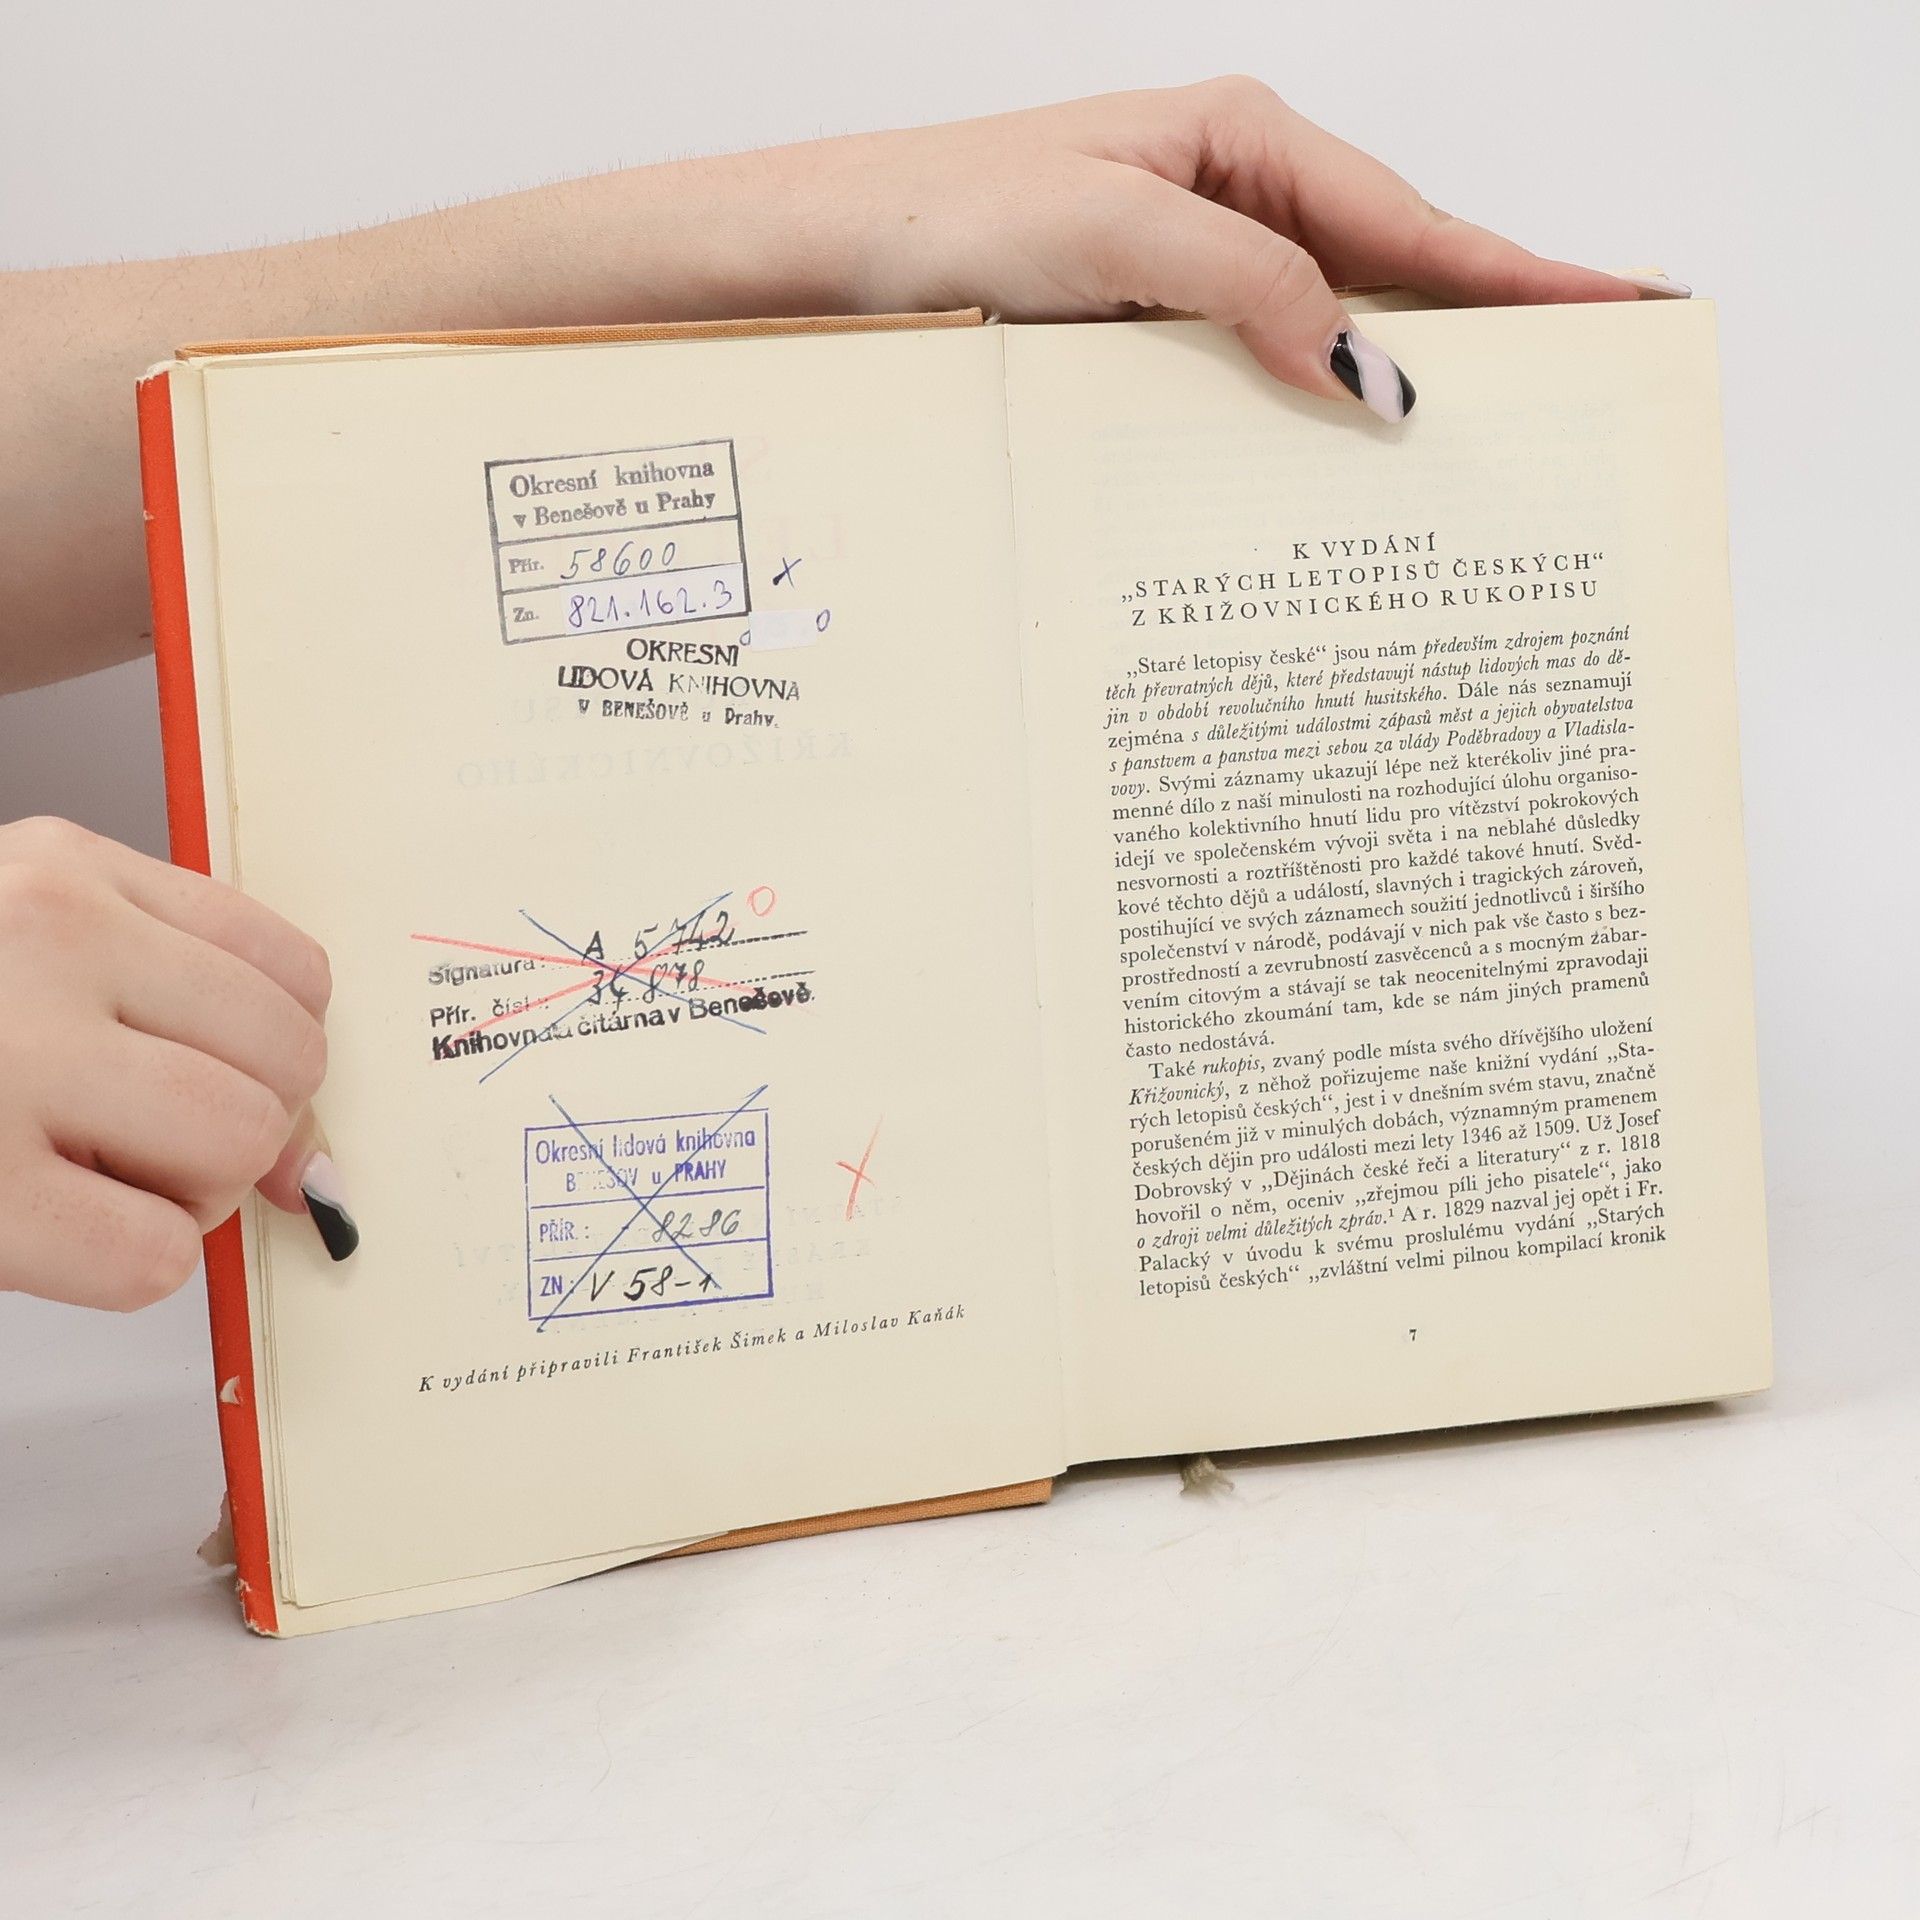 Okresní knihovna
v Benešově u Prahy
Přír. 58600
Zn. 821.162.3
x
0
OKRESNI
LIDOVÁ KNIHOVNA
V BENEŠOVĚ u Prahy.
0
Signatura: A 5742
Přír. čísl.: 34 878
Knihovna a čítárna v Benešově.
Okresní lidová knihovna
BENEŠOV u PRAHY
PŘÍR.: - 8286
ZN: V 58-1
K vydání připravili František Šimek a Miloslav Kaňák
K VYDÁNÍ
„STARÝCH LETOPISŮ ČESKÝCH“
Z KŘIŽOVNICKÉHO RUKOPISU
„Staré letopisy české“ jsou nám především zdrojem poznání
těch převratných dějů, které představují nástup lidových mas do dě-
jin v období revolučního hnutí husitského. Dále nás seznamují
zejména s důležitými událostmi zápasů měst a jejich obyvatelstva
s panstvem a panstva mezi sebou za vlády Poděbradovy a Vladisla-
vovy. Svými záznamy ukazují lépe než kterékoliv jiné pra-
menné dílo z naší minulosti na rozhodující úlohu organiso-
vaného kolektivního hnutí lidu pro vítězství pokrokových
idejí ve společenském vývoji světa i na neblahé důsledky
nesvornosti a roztříštěnosti pro každé takové hnutí. Svěd-
kové těchto dějů a událostí, slavných i tragických zároveň,
postihující ve svých záznamech soužití jednotlivců i širšího
společenství v národě, podávají v nich pak vše často s bez-
prostředností a zevrubností zasvěcenců a s mocným zabar-
vením citovým a stávají se tak neocenitelnými zpravodaji
historického zkoumání tam, kde se nám jiných pramenů
často nedostává.
Také rukopis, zvaný podle místa svého dřívějšího uložení
Křižovnický, z něhož pořizujeme naše knižní vydání „Sta-
rých letopisů českých“, jest i v dnešním svém stavu, značně
porušeném již v minulých dobách, významným pramenem
českých dějin pro události mezi lety 1346 až 1509. Už Josef
Dobrovský v „Dějinách české řeči a literatury“ z r. 1818
hovořil o něm, oceniv „zřejmou píli jeho pisatele“, jako
o zdroji velmi důležitých zpráv.¹ A r. 1829 nazval jej opět i Fr.
Palacký v úvodu k svému proslulému vydání „Starých
letopisů českých“ „zvláštní velmi pilnou kompilací kronik
7